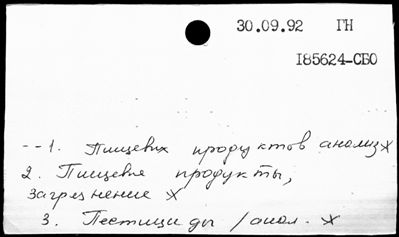 30.09.92 ГН
I85624-СБО
--1. Пищевых продуктов анализ х
2. Пищевые продукты,
загрязнение х
3. Пестициды /анал. х